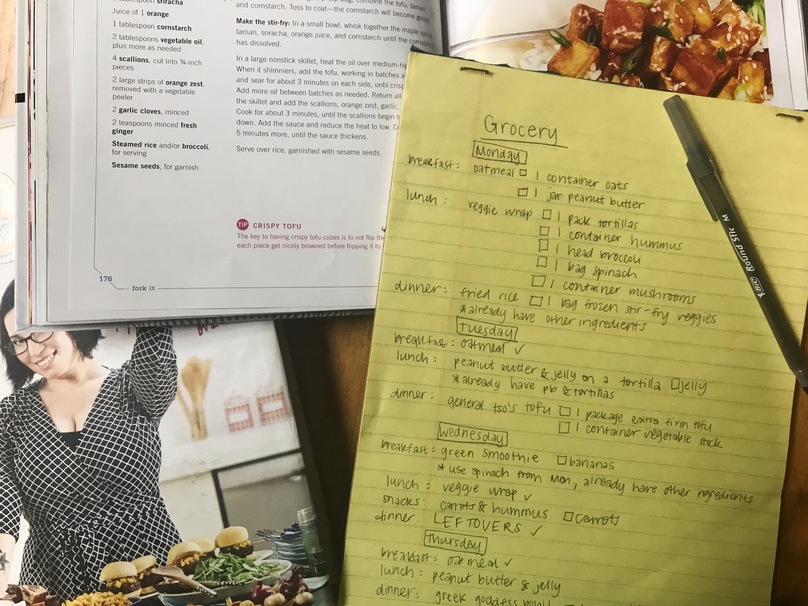 sriracha
Juice of 1 orange
1 tablespoon cornstarch
2 tablespoons vegetable oil,
plus more as needed
4 scallions, cut into ¾-inch
pieces
2 large strips of orange zest,
removed with a vegetable
peeler
2 garlic cloves, minced
2 teaspoons minced fresh
ginger
Steamed rice and/or broccoli,
for serving
Sesame seeds, for garnish
combine the tofu, tamari,
and cornstarch. Toss to coat—the cornstarch will become
Make the stir-fry: In a small bowl, whisk together the maple
tamari, sriracha, orange juice, and cornstarch until the cornstarch
has dissolved.
In a large nonstick skillet, heat the oil over medium-high
When it shimmers, add the tofu, working in batches
and sear for about 3 minutes on each side, until crisp
Add more oil between batches as needed. Return all
the skillet and add the scallions, orange zest, garlic,
Cook for about 3 minutes, until the scallions begin
down. Add the sauce and reduce the heat to low.
5 minutes more, until the sauce thickens.
Serve over rice, garnished with sesame seeds.
TIP CRISPY TOFU
The key to having crispy tofu cubes is to not flip the
each piece get nicely browned before flipping it
176
fork it
Grocery
Monday
breakfast: oatmeal 1 container oats
1 jar peanut butter
lunch: veggie wrap 1 pack tortillas
1 container hummus
1 head broccoli
1 bag spinach
1 container mushrooms
dinner: fried rice 1 bag frozen stir-fry veggies
*already have other ingredients
Tuesday
breakfast: oatmeal ✓
lunch: peanut butter & jelly on a tortilla jelly
*already have pb & tortillas
dinner: general tso's tofu 1 package extra firm tofu
1 container vegetable stock
Wednesday
breakfast: green smoothie bananas
* use spinach from mon, already have other ingredients
lunch: veggie wrap ✓
snacks: carrots & hummus carrots
dinner: LEFTOVERS ✓
Thursday
breakfast: oatmeal ✓
lunch: peanut butter & jelly
dinner: greek goddess bowl
BIC Round Stic M